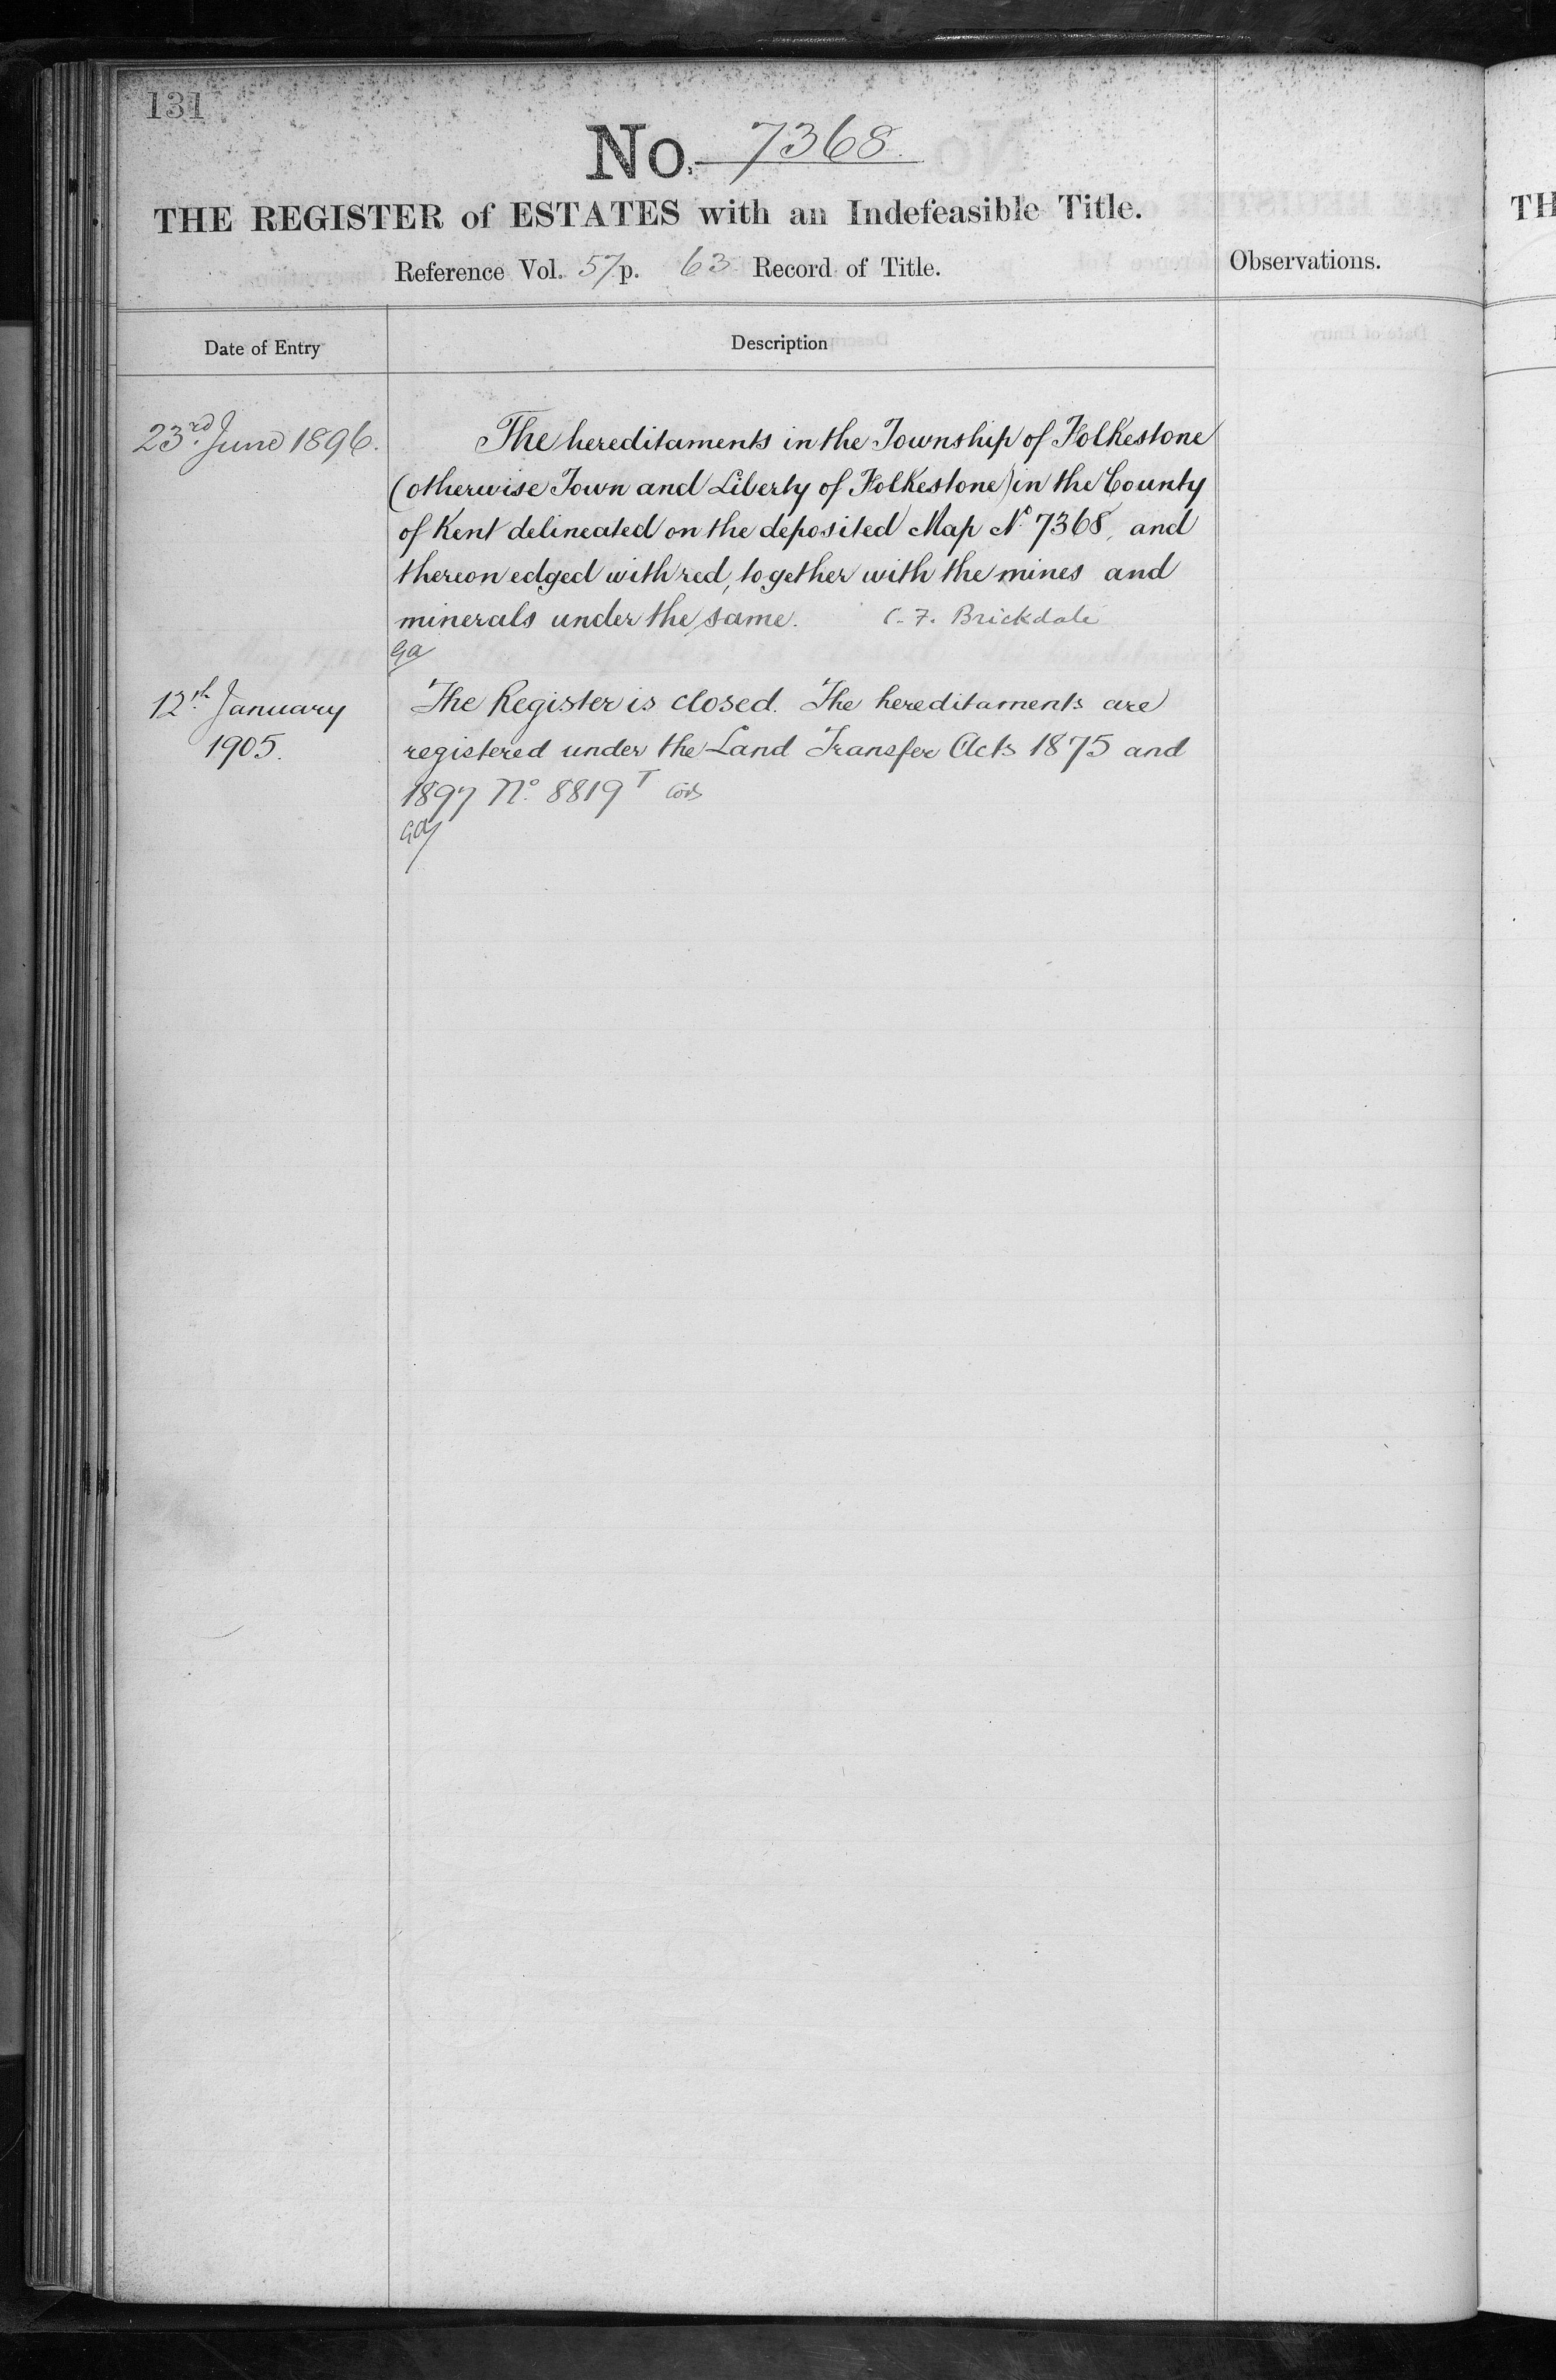 131
No. 7368.
THE REGISTER of ESTATES with an Indefeasible Title.
Reference Vol. 57 p. 63 Record of Title.
Observations.
Date of Entry
Description
23rd June 1896.
The hereditaments in the Township of Folkestone
(otherwise Town and Liberty of Folkestone) in the County
of Kent delineated on the deposited Map No 7368, and
thereon edged with red, together with the mines and
minerals under the same. C. F. Brickdale
Ga
12th January
1905.
The Register is closed. The hereditaments are
registered under the Land Transfer Acts 1875 and
1897 No. 8819 T
TH